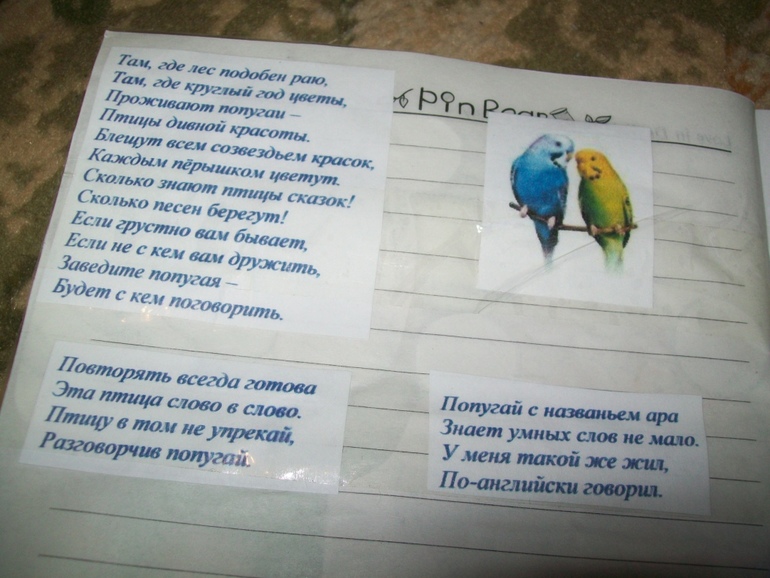 Там, где лес подобен раю,
Там, где круглый год цветы,
Проживают попугаи –
Птицы дивной красоты.
Блещут всем созвездьем красок,
Каждым пёрышком цветут.
Сколько знают птицы сказок!
Сколько песен берегут!
Если грустно вам бывает,
Если не с кем вам дружить,
Заведите попугая –
Будет с кем поговорить.
Pin
Повторять всегда готова
Эта птица слово в слово.
Птицу в том не упрекай,
Разговорчив попугай.
Попугай с названьем ара
Знает умных слов не мало.
У меня такой же жил,
По-английски говорил.